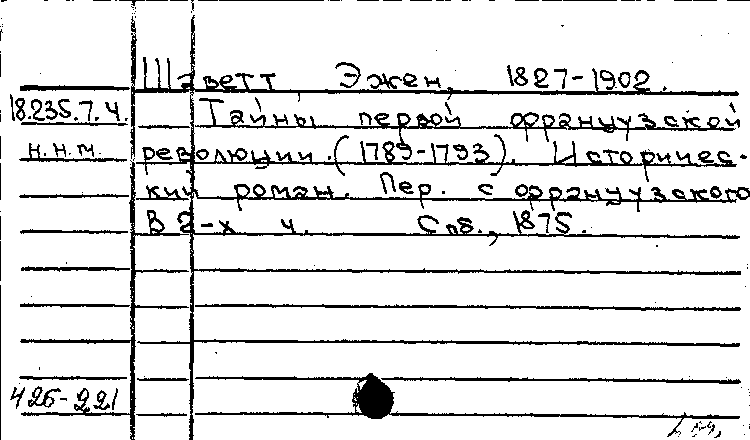 Шаветт, Эжен, 1827-1902.
18.235.7.4. Тайны первой французской
н.н.м. революции. (1789-1793). Историчес-
кий роман. Пер. с французского
В 2-х ч. Спб., 1875.
426-221